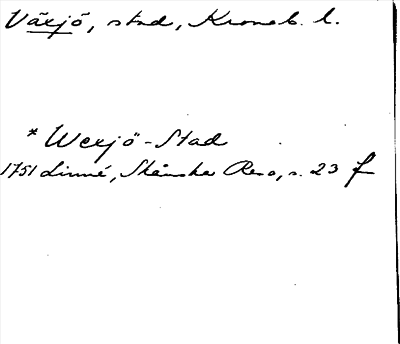 Växjö, stad, Kronob. l.
* Wexjö-Stad
1751 Linné, Skånska Resa, s. 23 f